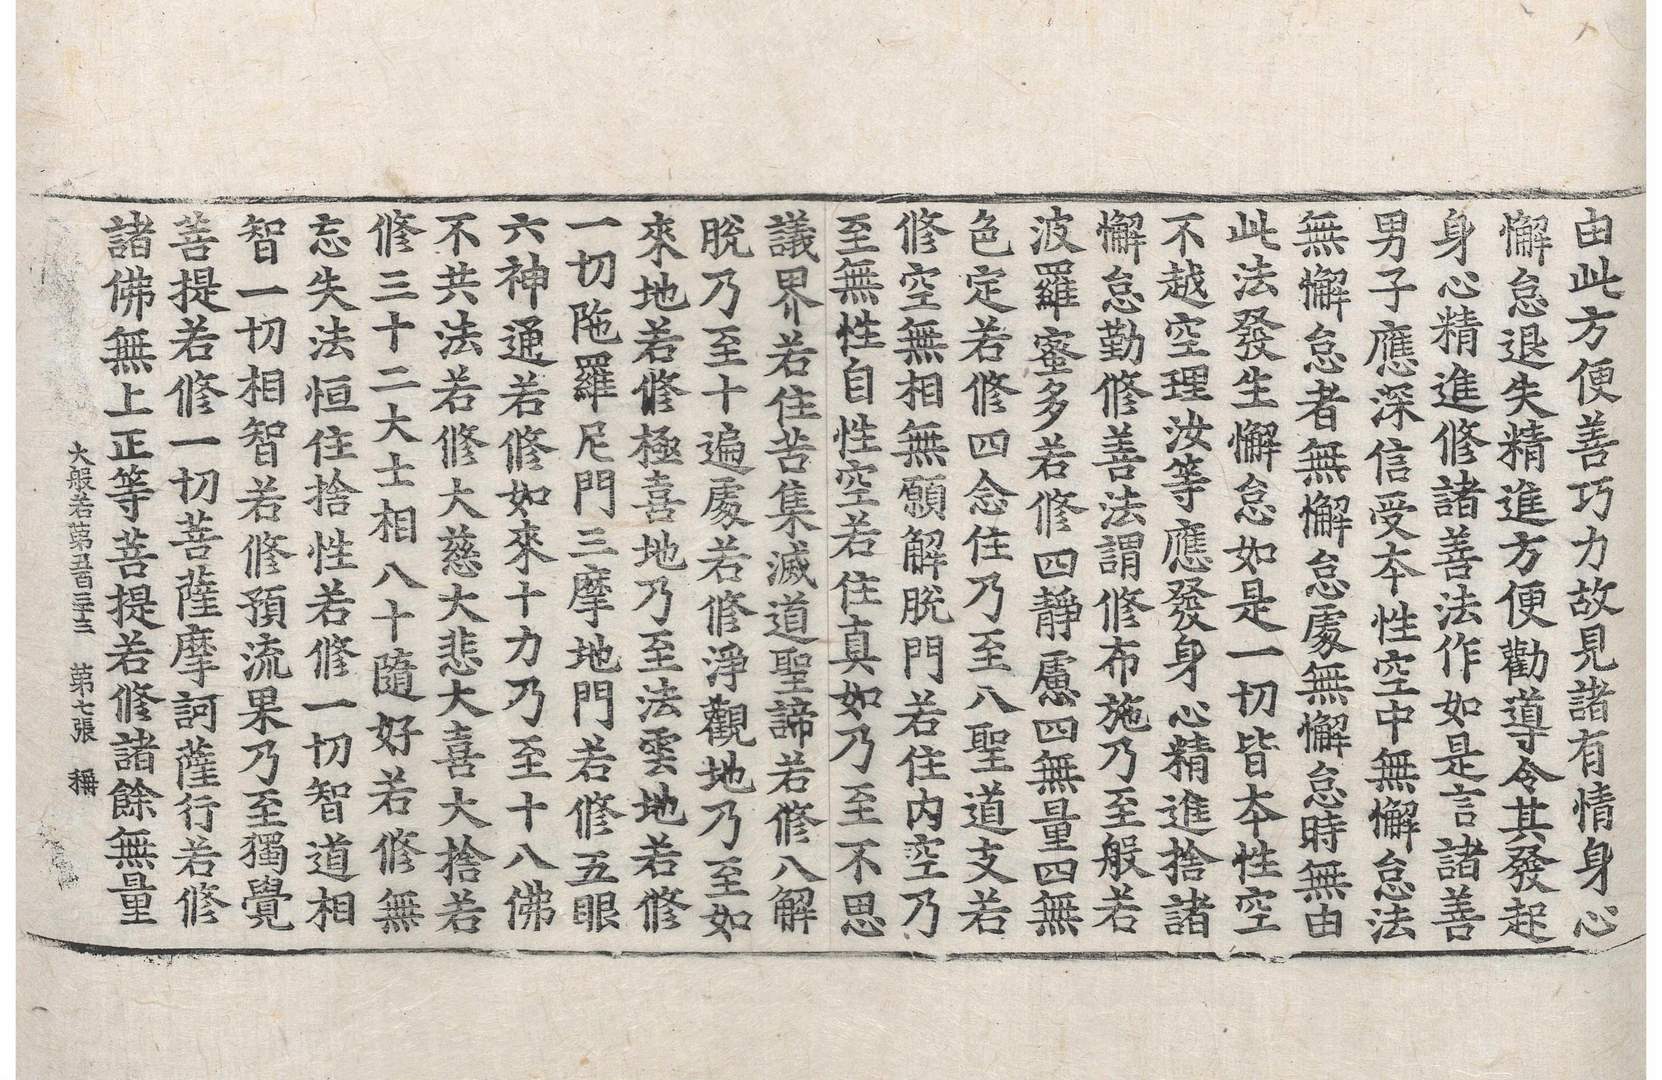 由此方便善巧力故見諸有情身心
懈怠退失精進方便勸導令其發起
身心精進修諸善法作如是言諸善
男子應深信受本性空中無懈怠法
無懈怠者無懈怠處無懈怠時無由
此法發生懈怠如是一切皆本性空
不越空理汝等應發身心精進捨諸
懈怠勤修善法謂修布施乃至般若
波羅蜜多若修四靜慮四無量四無
色定若修四念住乃至八聖道支若
修空無相無願解脫門若住內空乃
至無性自性空若住真如乃至不思
議界若住苦集滅道聖諦若修八解
脫乃至十遍處若修淨觀地乃至如
來地若修極喜地乃至法雲地若修
一切陁羅尼門三摩地門若修五眼
六神通若修如來十力乃至十八佛
不共法若修大慈大悲大喜大捨若
修三十二大士相八十隨好若修無
忘失法恒住捨性若修一切智道相
智一切相智若修預流果乃至獨覺
菩提若修一切菩薩摩訶薩行若修
諸佛無上正等菩提若修諸餘無量
大般若第五百三十三　第七張